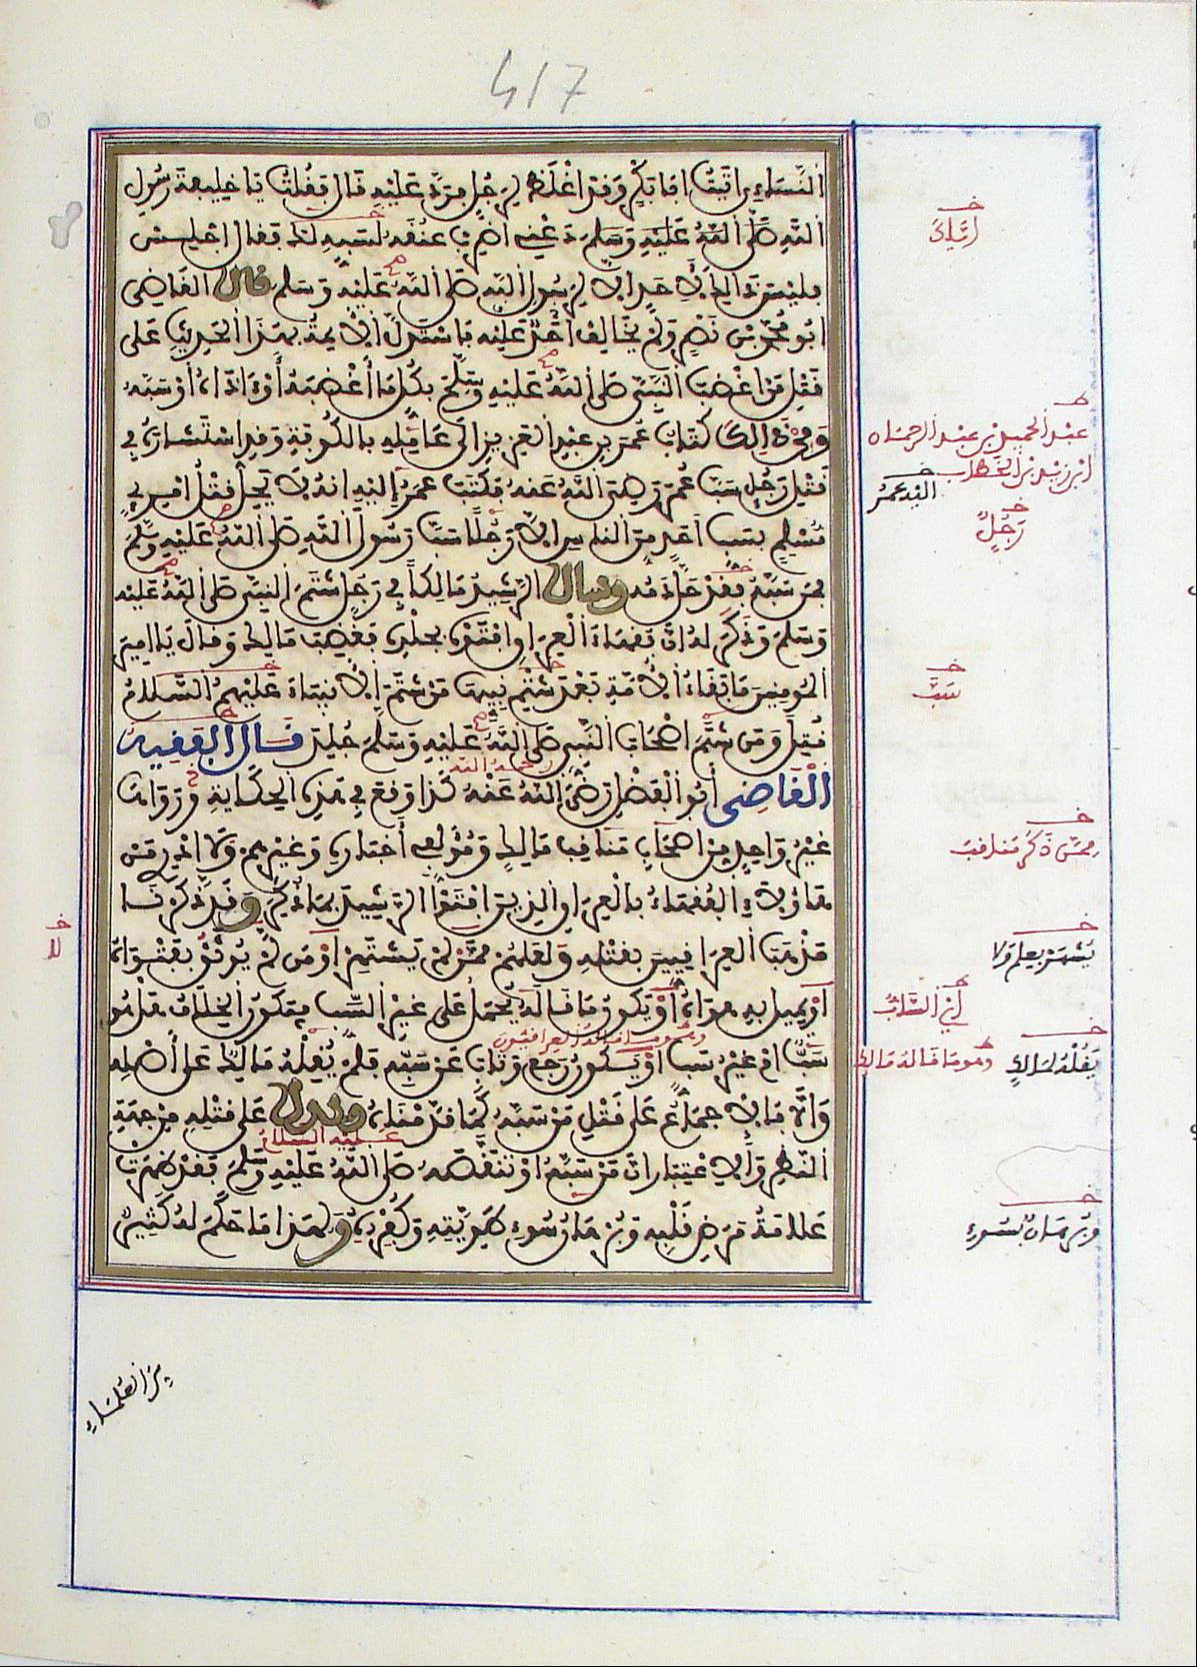 417
النَّسَاءِي اتَيْتُ ابَا بَكْرٍ وَقد اغْلَظَ لِرَجُلٍ فرَدَّ عَلَيْهِ قال فقُلْتُ يَا خليفةَ رسُولِ
اللّهِ صَلَّى اللّهُ عَلَيْهِ وَسَلّم دَعْنِي اضرِبْ عنُقَه لسَبِّهِ لك فقال اجْلِسْ
فليْسَ ذالِكَ لِأَحَدٍ الا لِرَسُولِ اللّه صَلى اللّهُ عَليْهِ وَسَلم قال القَاضِي
ابُو مُحَمَّد بْن نَصْرٍ وَلَمْ يخَالِفْ احَدٌ عَليْه فاسْتَدلَّ الأيمةُ بهَذَا الحَدِيثِ عَلى
قَتْلِ مَنْ اغْضَبَ النَّبِيَّ صَلى اللّهُ عَليْهِ وَسَلَّمَ بكُل مَا أغْضَبَهُ أوْ ءَاذَاهُ أوْ سَبَّهُ
وَمِنْ ذَالِكَ كتَابُ عُمرَ بن عَبْدِ العَزِيزِ الى عَامِلِهِ بالكُوفَةِ وَقدِ اسْتَشارَهُ في
قَتْلِ رَجُلٍ سَبَّ عُمَرَ رَضِيَ اللّهُ عَنهُ فكَتَبَ عمَرُ إليْهِ انهُ لا يَحِلُّ قَتْلُ امْرِئٍ
مُسْلِمٍ بسَبِّ أحَدٍ منَ الناسِ الا رَجُلًا سَبَّ رَسُولَ اللّه صَلى اللّهُ عَليْهِ وَسَلَّمَ
فمَن سَبَّهُ فقدْ حَلَّ دَمُه وسأل الرَّشِيدُ مَالِكاً في رَجُلٍ شتَمَ النبِيَّ صَلى اللهُ عَليْه
وَسَلمَ وَذَكَرَ لهُ أنَّ فقهَاءَ العِرَاقِ افْتَوْهُ بجَلْدِهِ فغَضِبَ مَالِكٌ وَقالَ يَا امِيرَ
المُومِنينَ مَا بَقَاءُ الأمَّةِ بَعْدَ شَتْمِ نَبِيهَا مَنْ شَتَمَ الانبيَاءَ عَليْهِمُ السَّلامُ
قُتِلَ وَمَن شتَمَ اصْحَابَ النَّبِيِّ صَلى اللّهُ عَليْهِ وَسَلَّمَ جُلِدَ قَالَ الفَقِيهُ
القَاضِى أبُو الفَضْلِ رَضِيَ اللهُ عَنْهُ كَذَا وَقعَ في هَذِهِ الحِكَايَةِ وَرَوَاهَا
رحمه الله
غَيْرُ وَاحِدٍ مِن اصْحَابِ مَنَاقِبِ مَالِكٍ وَمُؤلِّفِي أخبَارِهِ وَغيْرهِمْ وَلا ادْرِي مَنْ
هَاؤلاءِ الفُقهَاءُ بالعِرَاقِ الذِينَ افْتَوُا الرَّشِيدَ بمَا ذُكِرَ وَقَد ذَكَرْنَا
مَذْهَبَ العِرَاقِيينَ بقَتْلِهِ وَلعَلهُمْ ممَّنْ لمْ يَشْتَهِرْ أوْ مَن لَمْ يُوثَقْ بفَتْوَاهُ
أوْ يَمِيل بهِ هوَاهُ أوْ يَكُون مَا قَالهُ يحْمَلُ على غَيْرِ السَّبِّ فيَكُون الخِلافُ هَلْ هُو
وهو ما قاله العراقيون
سَبٌّ اوْ غيْرُ سَبٍّ اوْ يَكُون رَجَع وَتَابَ عَن سَبِّهِ فلَمْ يَقُلْهُ لمَالِكٍ عَلَى أصْلِهِ
وَالا فالاجمَاع عَلى قَتْلِ مَنْ سَبَّهُ كمَا قدَّمْنَاهُ ويدل عَلى قتْلِهِ من جِهَةِ
عليه السلام
النّظَرِ وَالاعْتِبَارِ انَّ مَنْ سَبَّهُ أوْ تنَقَّصَهُ صَلى اللّهُ عَليْهِ وَسَلَّمَ فقدْ ظهَرَتْ
عَلامَةُ مَرَضِ قَلْبِهِ وَبُرْهَانُ سُوءِ طَوِيَّتِهِ وَكُفْرِهِ وَلهَذَا مَا حَكَمَ لهُ كَثِيرٌ
عبْد الحميدِ بْن عبْد الرحمان
ابْن زيْد بْن الخطاب
اليْه عمَرُ
رَجُلٌ
سَبَّ
ممَّن ذكَر مناقبَ
يُشْهَرْ بعِلمٍ وَلا
لا
يَقُلْهُ لمَالِكٍ
وهو مَا قَالهُ مَالك
وبُرهَان لسُوءِ
مِنَ العُلمَاءِ